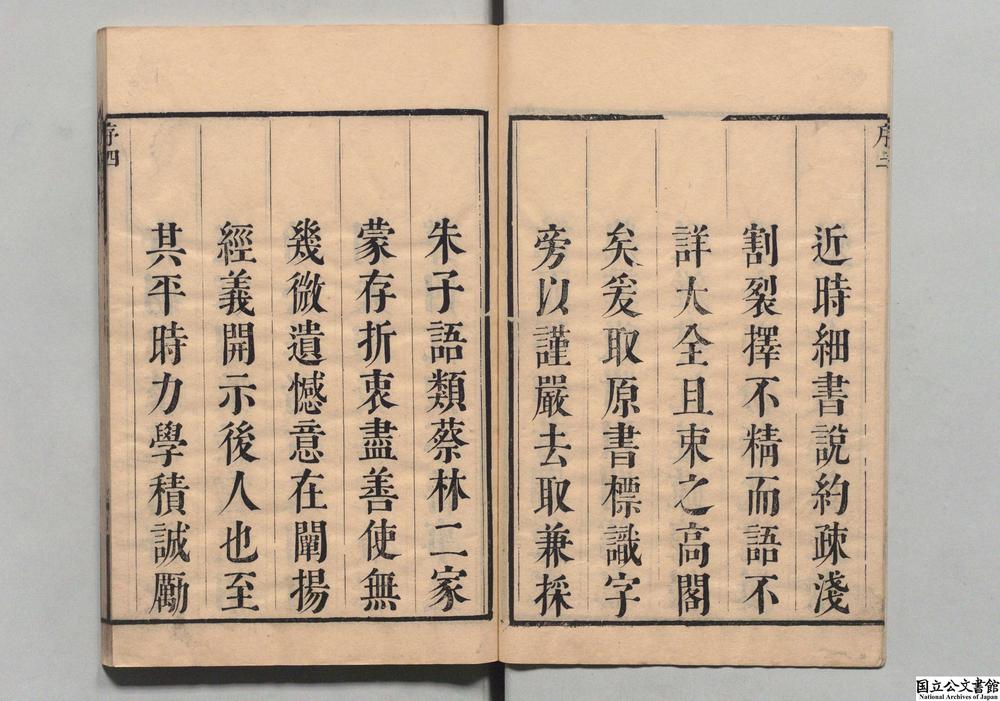 序三
近時細書說約疎淺
割裂擇不精而語不
詳大全且束之高閣
矣爰取原書標識字
旁以謹嚴去取兼採
朱子語類蔡林二家
蒙存折衷盡善使無
幾微遺憾意在闡揚
經義開示後人也至
其平時力學積誠勵
序四
国立公文書館
National Archives of Japan